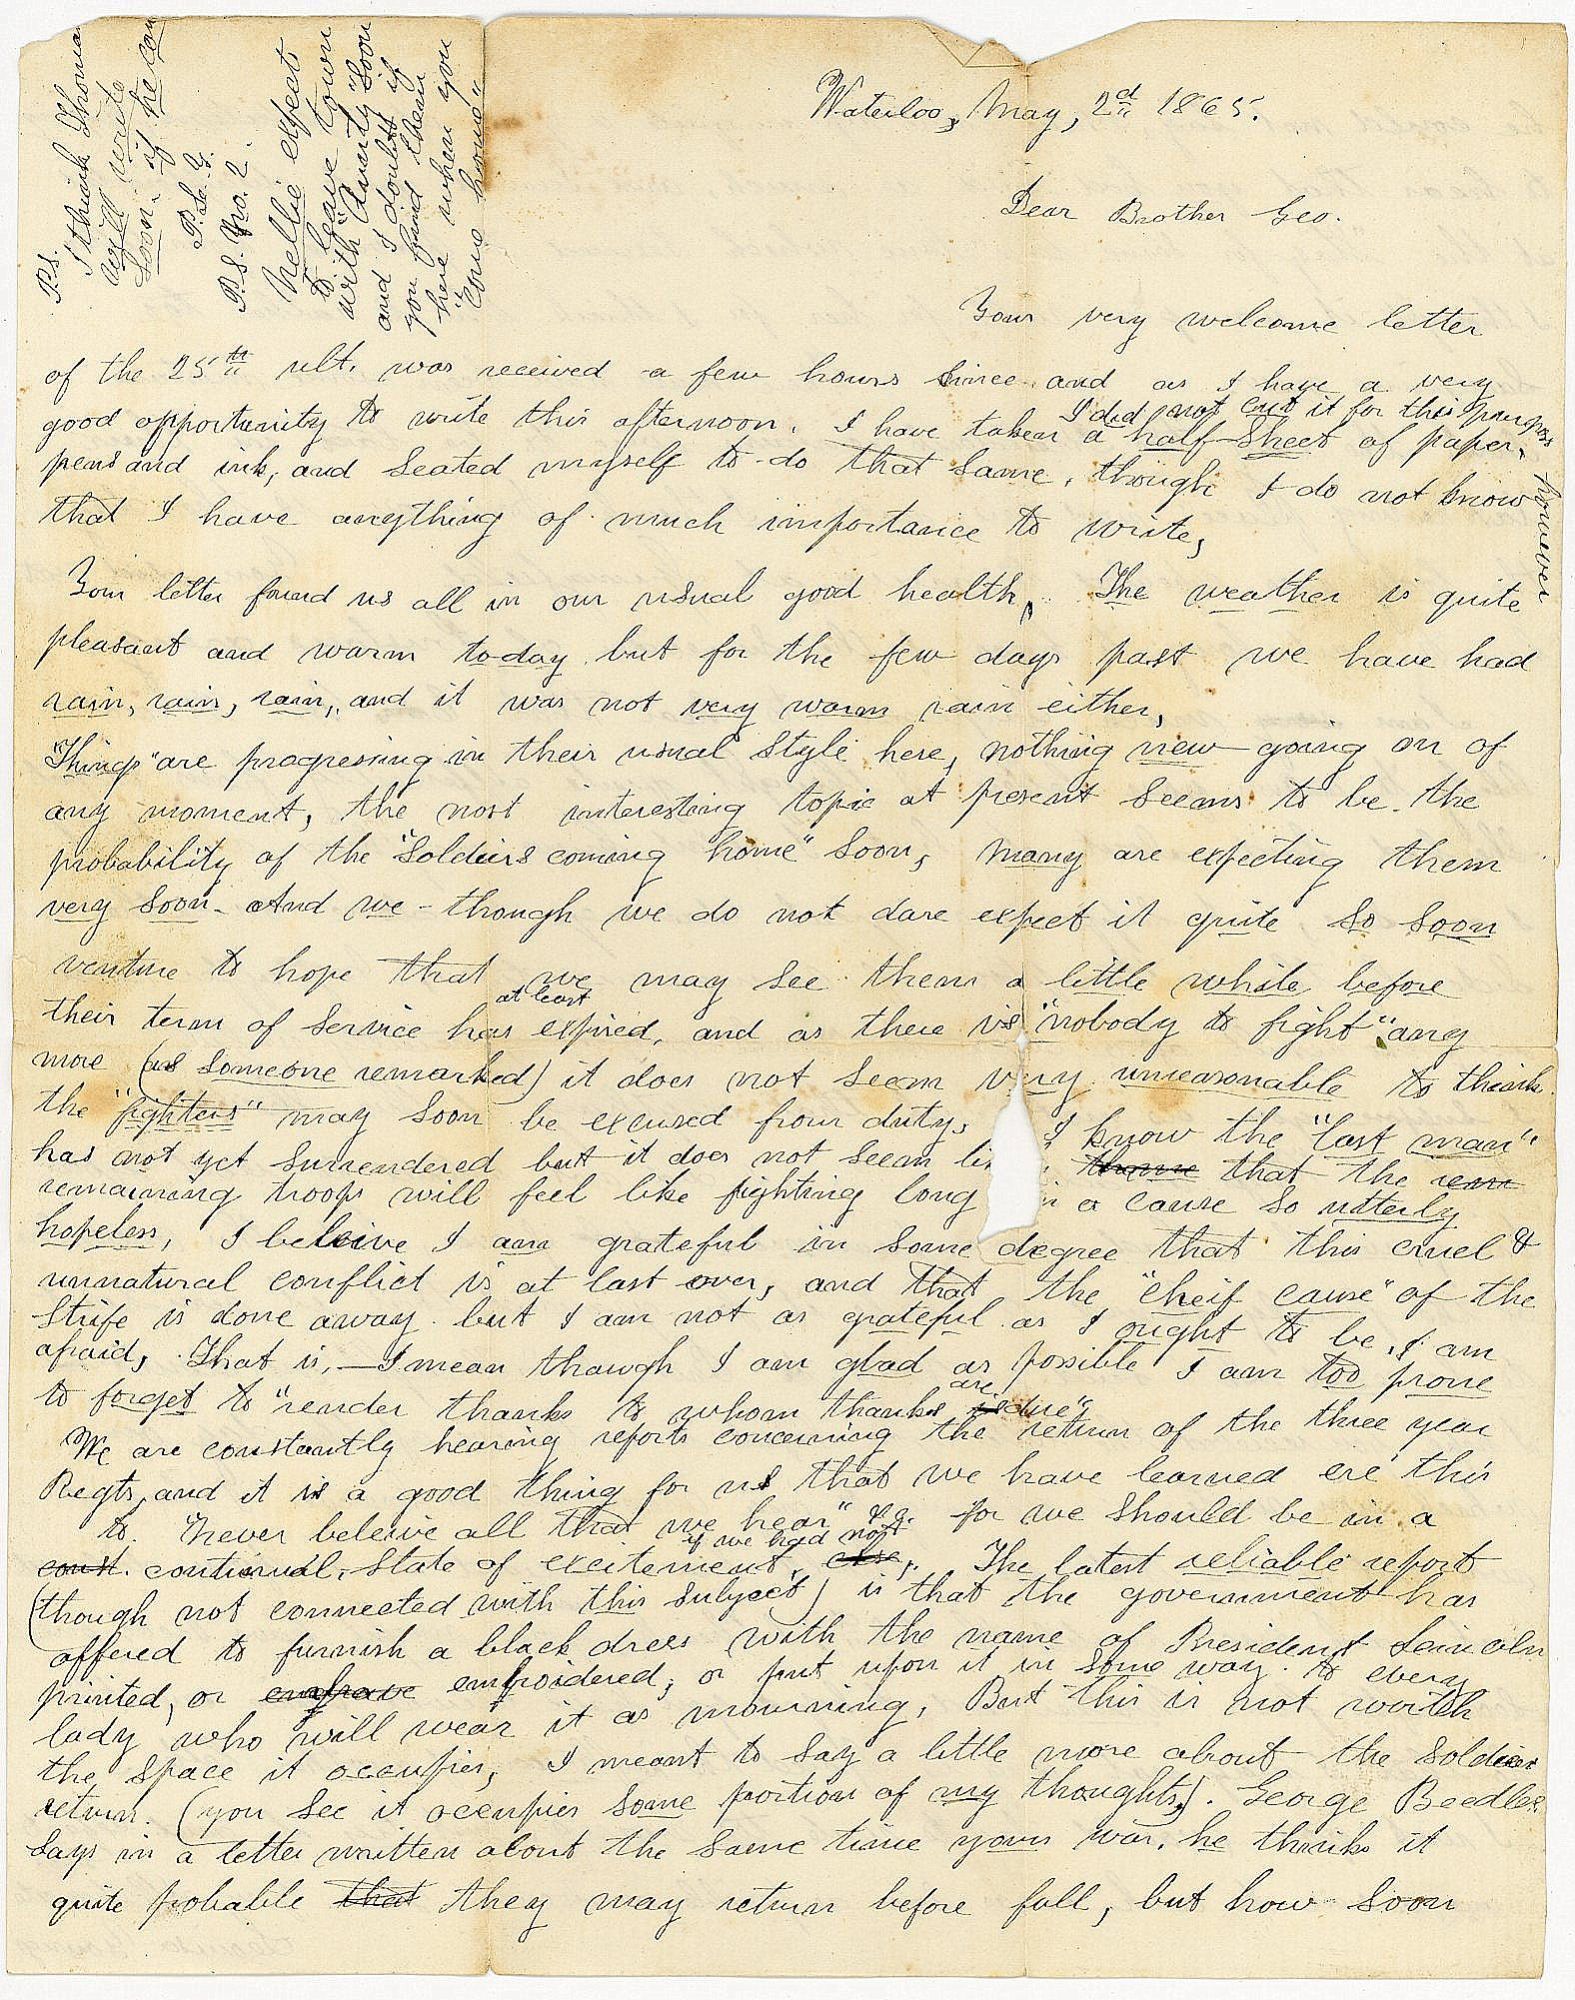 Waterloo, May, 2d 1865.
Dear Brother Geo.
Your very welcome letter
of the 25th ult. was received a few hours since and as I have a very
good opportunity to write this afternoon. I have taken a half-sheet of paper,
I did not cut it for this purpose
however
pens and ink, and seated myself to do that same, though I do not know
that I have anything of much importance to write,
Your letter found us all in our usual good health, The weather is quite
pleasant and warm to-day but for the few days past we have had
rain, rain, rain, and it was not very warm rain either,
"Things" are progressing in their usual style here, nothing new going on of
any moment, the most interesting topic at present seems to be the
probability of the "soldiers coming home" soon, many are expecting them
very soon - And we - though we do not dare expect it quite so soon
venture to hope that we may see them a little while before
at least
their term of service has expired, and as there is "nobody to fight" any
more (as someone remarked) it does not seem very unreasonable to think
the "fighters" may soon be excused from duty, I know the "last man"
has not yet surrendered but it does not seem li that the rem
remaining troops will feel like fighting long in a cause so utterly
hopeless, I beleive I am grateful in some degree that this cruel &
unnatural conflict is at last over, and that the "cheif cause" of the
strife is done away but I am not as grateful as I ought to be, I am
afraid, That is, — I mean though I am glad as possible I am too prone
to forget to "render thanks to whom thanks is due"
are
We are constantly hearing reports concerning the return of the three year
Regts, and it is a good thing for us that we have learned ere this
to "never beleive all that we hear" &c. for we should be in a
const. continual, state of excitement, else,. The latest reliable report
if we had not
(though not connected with this subject) is that the government has
offered to furnish a black dress with the name of President Lincoln
printed, or engrave embroidered, or put upon it in some way to every
lady who will wear it as mourning, But this is not worth
the space it occupies, I meant to say a little more about the soldiers
return. (you see it occupies some portion of my thoughts). George Beedles
says in a letter written about the same time yours was, he thinks it
quite probable that they may return before fall, but how soon
P.S.
I think Thomas
will write
soon - if he can
P.S. No. 2.
Nellie expects
to leave town
with Aunty soon
and I doubt if
you find them
here when you
"come home"